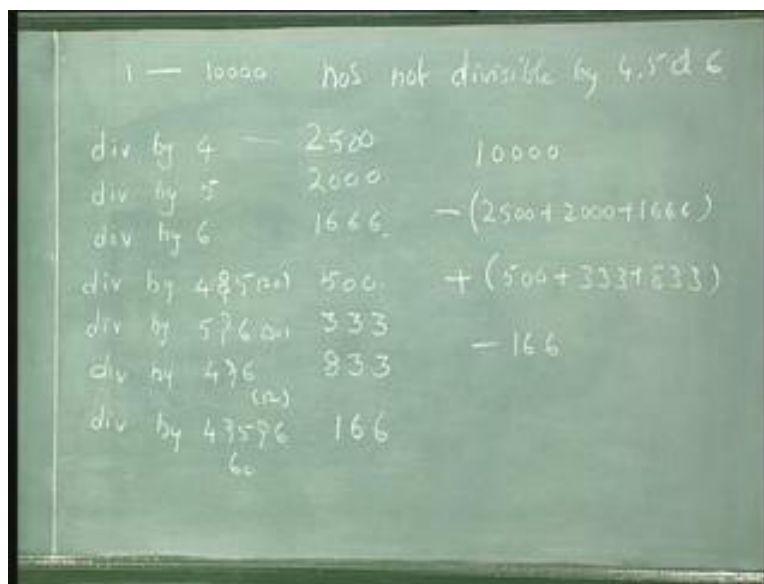 1 — 10000 nos not divisible by 4,5 & 6
div by 4 — 2500
div by 5 2000
div by 6 1666
div by 4&5 (20) 500
div by 5&6 333
div by 4&6 833
(12)
div by 4&5&6 166
60
10000
-(2500+2000+1666)
+(500+333+833)
-166